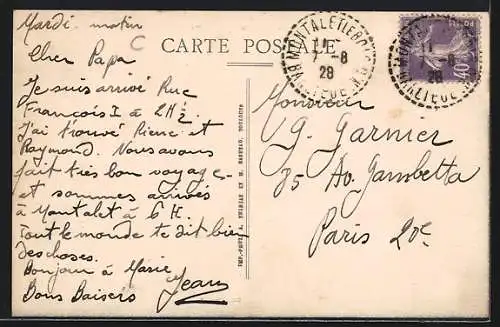 Mardi matin
Cher Papa
Je suis arrivé Rue
François I à 2H ½
J'ai trouvé Pierre et
Raymond. Nous avons
fait très bon voyage
et sommes arrivés
à Montalet à 6 H.
Tout le monde te dit bien
des choses.
Bonjour à Marie
Bons Baisers Jean
C
CARTE POSTALE
MONTALET LE BOIS
11
7-8
28
11
-8
28
40
Monsieur
G. Garnier
85 Av. Gambetta
Paris 20e